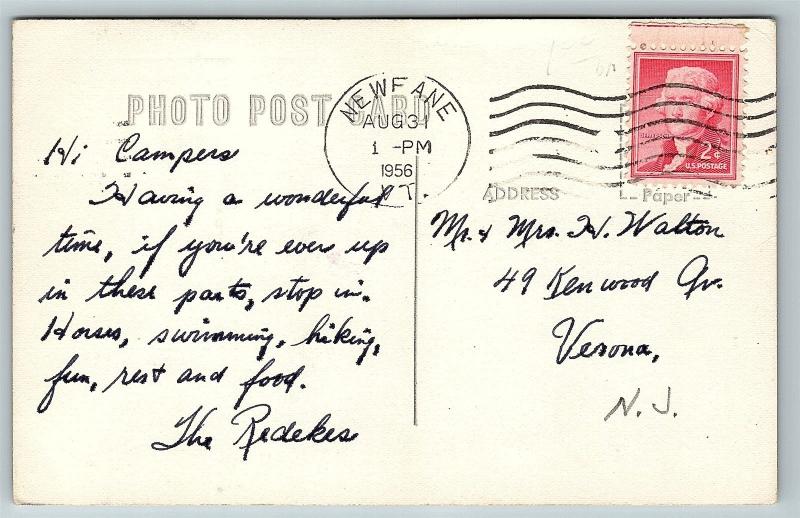 PHOTO POST CARD
NEWFANE
AUG 31
1 -PM
1956
VT.
2¢
U.S. POSTAGE
ADDRESS
Paper
Hi Campers
Having a wonderful
time, if you're ever up
in these parts, stop in.
Horses, swimming, hiking,
fun, rest and food.
The Redekes
Mr. & Mrs. H. Walton
49 Kenwood Av.
Verona,
N. J.